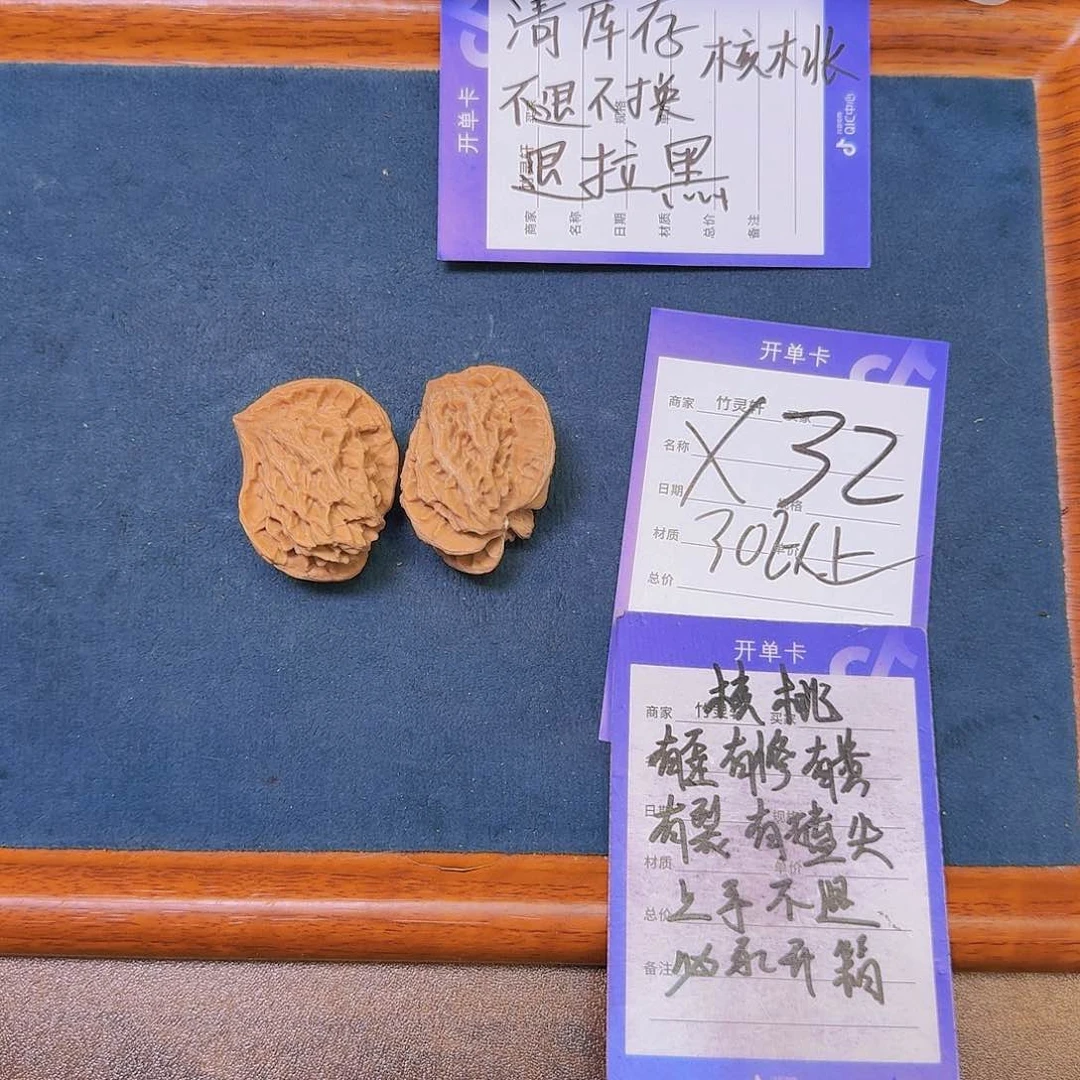 清库存
核桃
不退不换
退拉黑
开单卡
商家
名称
日期
材质
总价
备注
QIC中心
开单卡
商家 竹灵轩
名称
X 32
日期
材质
30以上
总价
开单卡
核桃
商家
有歪有修有黄
有裂有磕尖
日期
材质 单价
上手不退
总价
备注
必录开箱